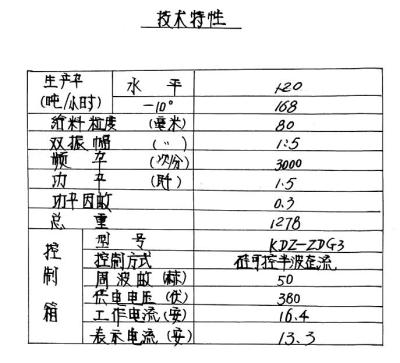 技术特性
生产率 水平 120
(吨/小时) -10° 168
给料粒度 (毫米) 80
双振幅 (〃) 1:5
频率 (次/分) 3000
功率 (瓩) 1.5
功率因数 0.3
总重 1278
控制箱 型号 KDZ-ZDG3
控制方式 硅可控半波整流
周波数(赫) 50
供电电压(伏) 380
工作电流(安) 16.4
表示电流(安) 13.3